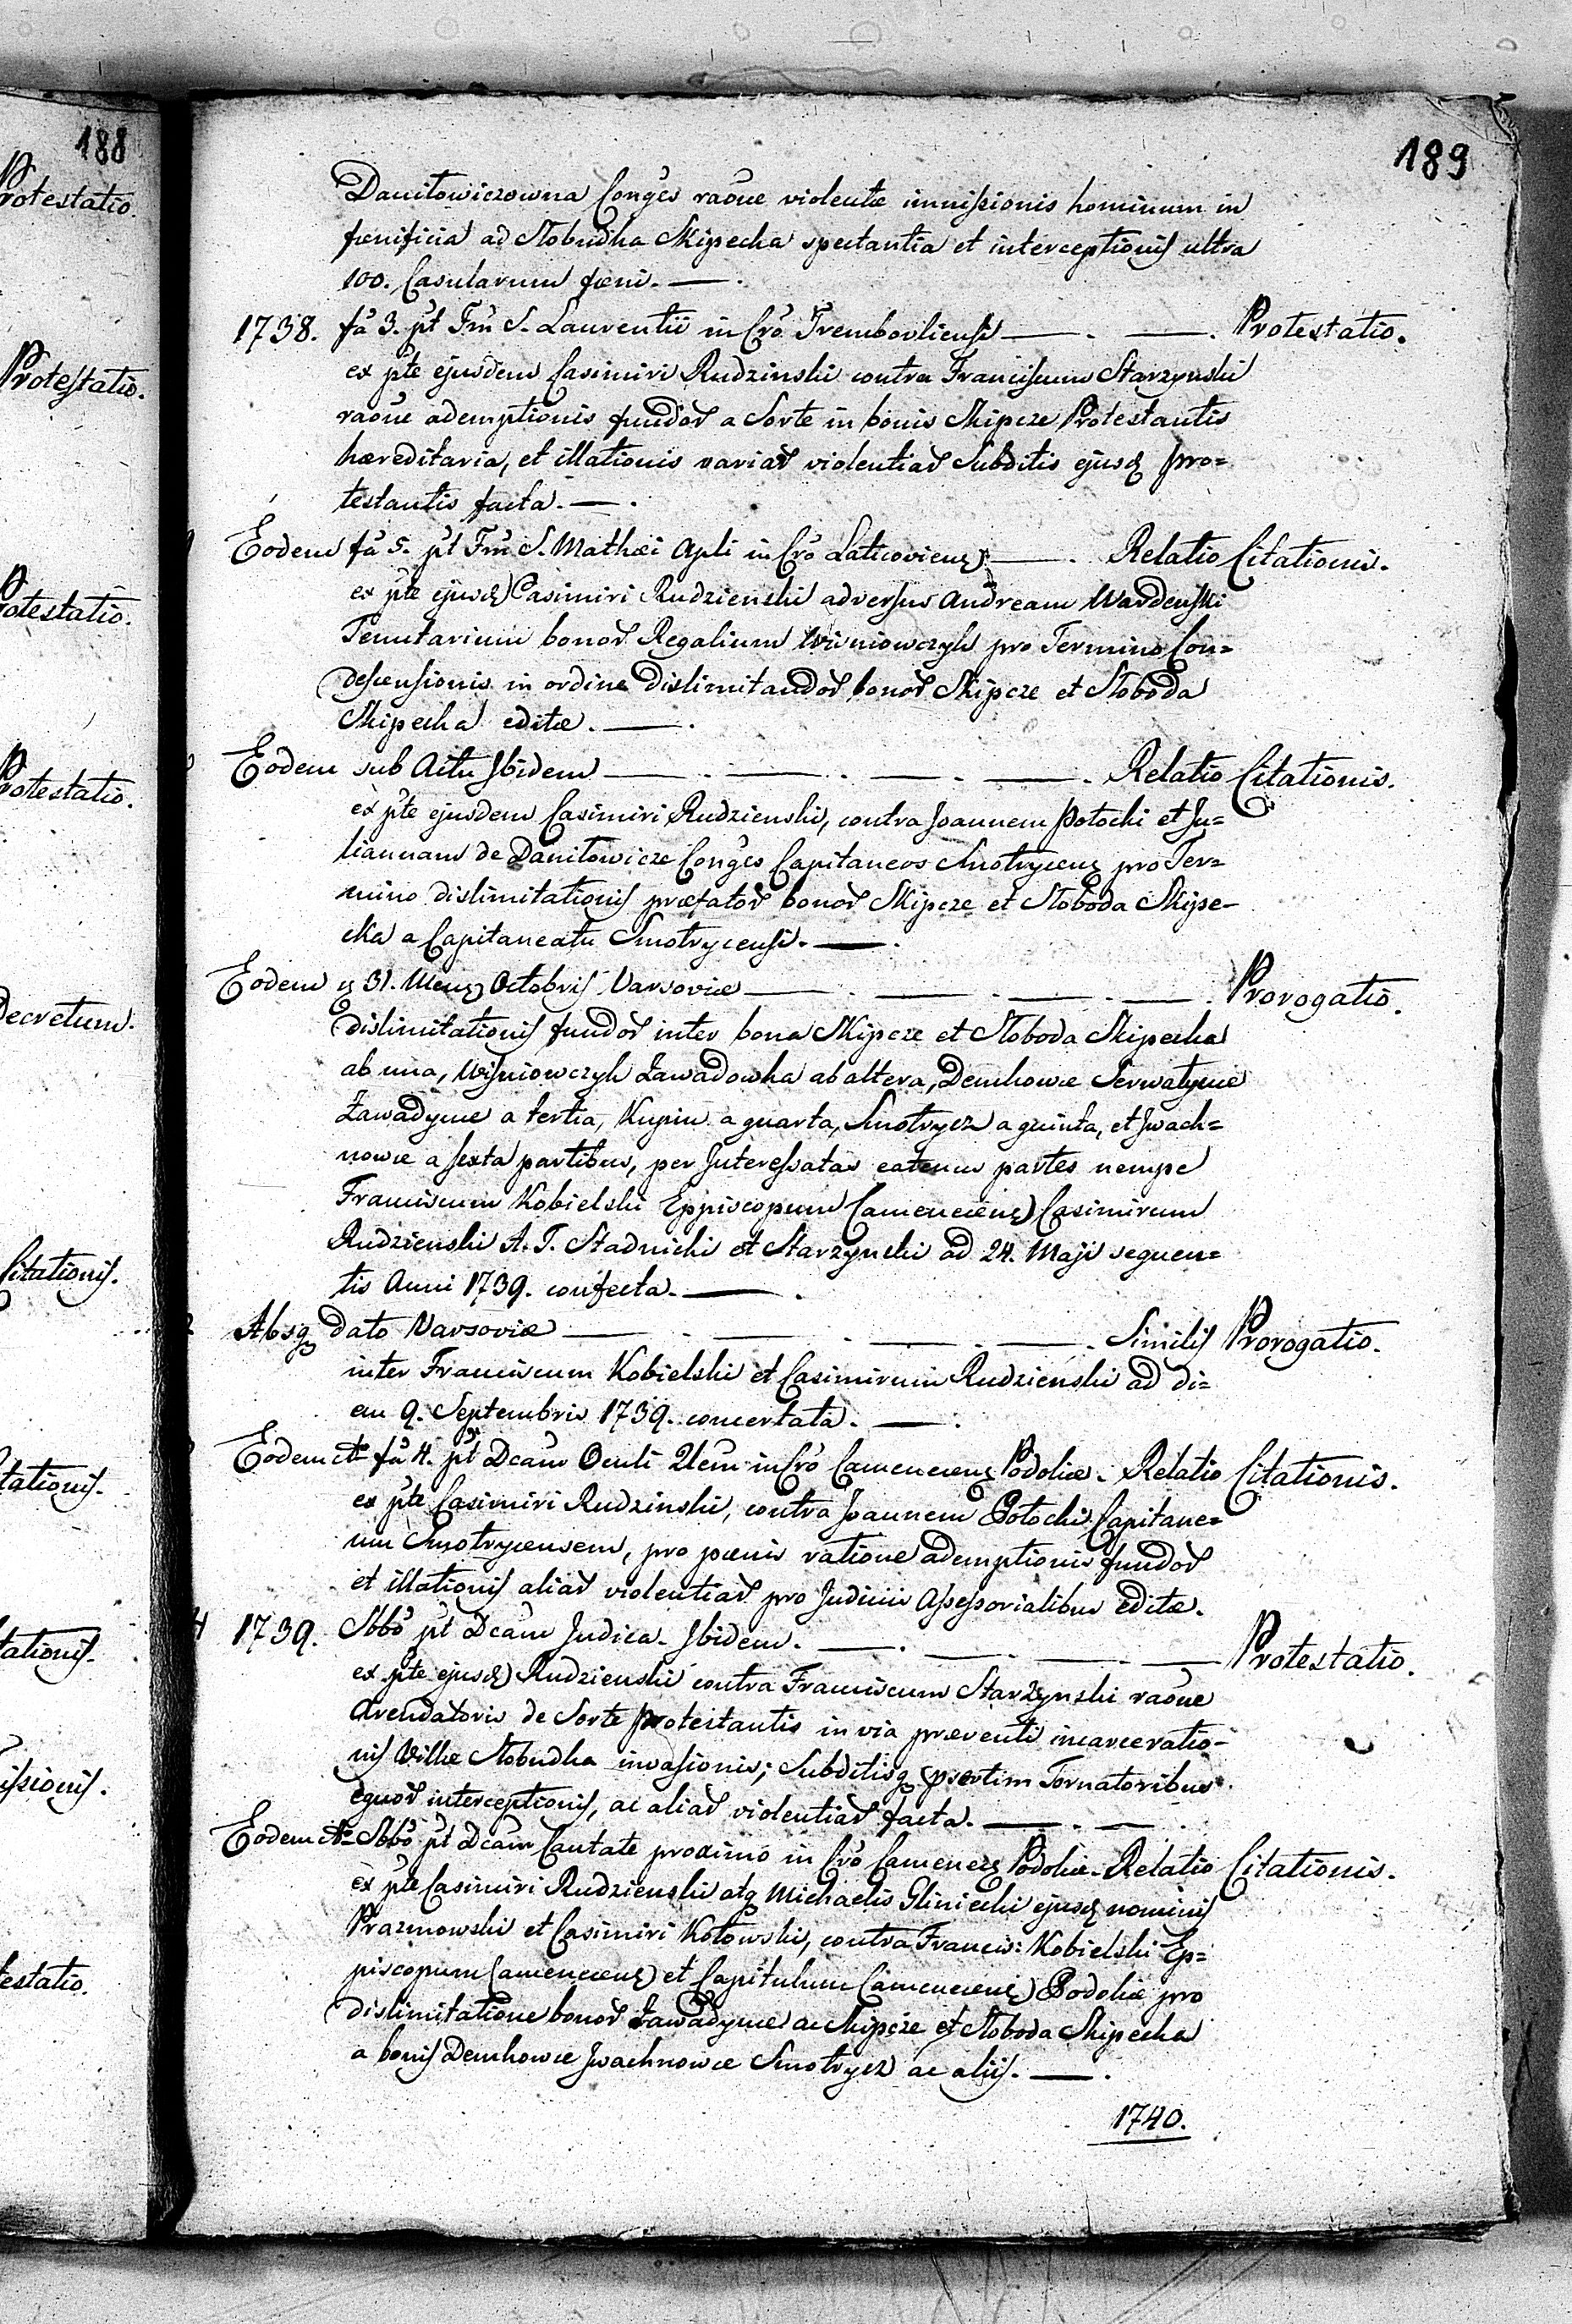 188
Protestatio.
Protestatio.
Protestatio.
Protestatio.
Decretum.
Citationis.
Citationis.
189
Daniłowiczowna Conges raőne violentæ immissionis hominum in
fænificia ad Słobudka Skipecka spectantia et interceptionis ultra
100. Casularum fæni. — .
1738. fã 3. pt Fm S. Laurentii in Crő Trembovliensi — . — . Protestatio.
ex pte ejusdem Casimiri Rudzinski contra Franciscum Starzynski
raőne ademptionis fundor a Sorte in bonis Skipcze Protestantis
hæreditaria, et illationis variar violentiar Subditis ejusd pro=
testantis facta. — .
Eodem fã 5. pt Fm S. Mathæi Apli in Crő Laticoviens — . Relatio Citationis.
ex pte ejusd Casimiri Rudzienski adversus Andream Wardenski
Tenutarium bonor Regalium Wiśniowczyk pro Termino Con=
descensionis in ordine dislimitandor bonor Skipcze et Słoboda
Skipecka editæ. — .
Eodem sub Actu Ibidem — . — . — . — . Relatio Citationis.
ex pte ejusdem Casimiri Rudzienski, contra Joannem Potocki et Ju=
liannam de Daniłowicze Conges Capitaneos Smotrycens pro Ter=
mino dislimitationis præfator bonor Skipcze et Słoboda Skipe-
cka a Capitaneatu Smotrycensi. — .
Eodem 31. Mens Octobris Varsoviæ — . — . — . — . Prorogatio.
dislimitationis fundor inter bona Skipcze et Słoboda Skipecka
ab una, Wiśniowczyk Zawadowka ab altera, Demkowce Serwatynce
Zawadynce a tertia, Kupin a quarta, Smotrycz a quinta, et Jwach=
nowce a sexta partibus, per Interessatas eatenus partes nempe
Franciscum Kobielski Eppiscopum Camenecens Casimirum
Rudzienski A. T. Stadnicki et Starzynski ad 24. Maji sequen=
tis Anni 1739. confecta. — .
Absq dato Varsoviæ — . — . — . — . Similis Prorogatio.
inter Franciscum Kobielski et Casimirum Rudzienski ad di=
em 9. Septembris 1739. concertata. — .
Eodem Ao fã 4. pt Dcam Oculi in Crő Camenecens Podoliæ. Relatio Citationis.
ex pte Casimiri Rudzinski, contra Joannem Potocki Capitane=
um Smotrycensem, pro pænis ratione ademptionis fundor
et illationis aliar violentiar pro Judiciis Assessorialibus editæ.
1739. Sbbő pt Dcam Judica. Ibidem. — . — . — . — Protestatio.
ex pte ejusd Rudzienski contra Franciscum Starzynski raőne
Arendatoris de Sorte protestantis in via præventi incarceratio-
nis Villæ Słobudka invasionis; Subditisq psertim Fornatoribus
equor interceptionis, ac aliar violentiar facta. — . — .
Eodem Ao Sbbő pt Dcam Cantate proximo in Crő Camenecs Podoliæ. Relatio Citationis.
ex pte Casimiri Rudzienski atq Michaelis Gliniecki ejusd nominis
Prazmowski et Casimiri Kotowski, contra Francis: Kobielski Ep=
piscopum Camenecens et Capitulum Camenecens Podoliæ pro
dislimitatione bonor Zawadynce ac Skipcze et Słoboda Skipecka
a bonis Demkowce Jwachnowce Smotrycz ac aliis. — .
1740.